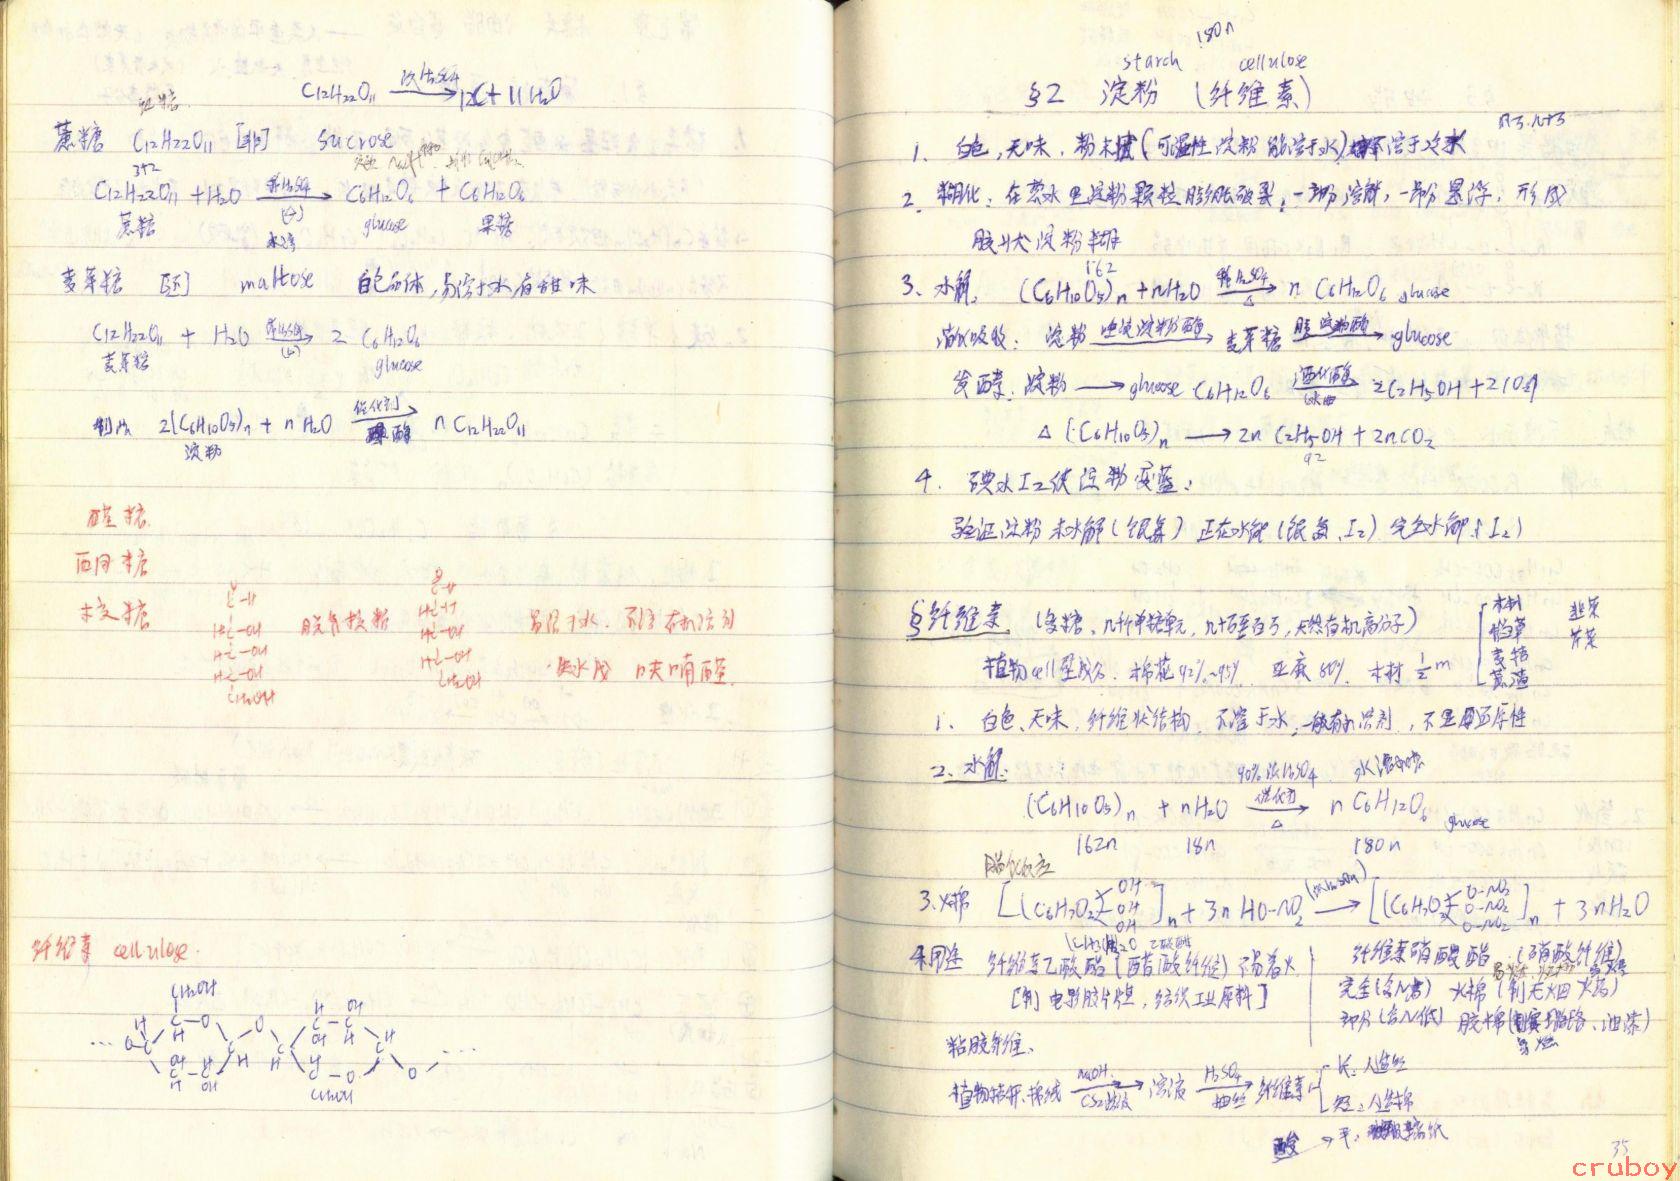 C12H22O11 浓H2SO4→ 12C+11H2O
蔗糖 C12H22O11 [非] sucrose
3+2
C12H22O11 + H2O 稀H2SO4→ C6H12O6 + C6H12O6
蔗糖 水浴 glucose 果糖
麦芽糖 [还] maltose 白色晶体,易溶于水有甜味
C12H22O11 + H2O 稀H2SO4→ 2 C6H12O6
麦芽糖 glucose
制取 2(C6H10O5)n + n H2O 催化剂→ n C12H22O11
淀粉 酶
醛糖
酮糖
核糖 脱氧核糖 易溶于水.不溶有机溶剂
脱水成 呋喃醛.
纤维素 cellulose.
CH2OH
180n
starch cellulose
§2 淀粉 (纤维素)
1. 白色,无味,粉末状(可溶性淀粉能溶于水)不溶于冷水
2. 糊化:在热水里淀粉颗粒膨胀破裂,一部分溶解,一部分悬浮,形成
胶状淀粉糊
162
3. 水解. (C6H10O5)n + nH2O 稀H2SO4→△ n C6H12O6 glucose
消化吸收:淀粉 唾液淀粉酶→ 麦芽糖 胰淀粉酶→ glucose
发酵.淀粉 → glucose C6H12O6 酒化酶→ 2C2H5OH + 2CO2↑
△ (C6H10O5)n → 2n C2H5OH + 2nCO2
92
4. 碘水I2使淀粉变蓝:
验证淀粉未水解(银氨) 正在水解(银氨、I2) 完全水解(I2)
§纤维素 (多糖、几千个单糖单元,几十万至百万,天然有机高分子)
木材 稻草 麦秸 蔗渣 韭菜 芹菜
植物cell壁成分.棉花92%~95% 亚麻80% 木材 1/2 m
1、白色、无味,纤维状结构,不溶于水,一般有机溶剂,不显还原性
2. 水解: 90%浓H2SO4 水浴加热
(C6H10O5)n + nH2O 催化剂→△ n C6H12O6 glucose
162n 18n 180n
酯化反应
3.火棉 [(C6H7O2) OH OH OH]n + 3n HO-NO2 (浓H2SO4)→ [(C6H7O2) O-NO2 O-NO2 O-NO2]n + 3nH2O
4.用途 纤维素乙酸酯(醋酸纤维)不易着火
[制] 电影胶片片基,纺织工业原料]
纤维素硝酸酯 (硝酸纤维)
完全(含N高) 火棉(制无烟火药)
部分(含N低) 胶棉(制赛璐珞、油漆)
易燃
粘胶纤维.
植物秸秆、棉绒 NaOH CS2→ 溶液 H2SO4 抽丝→ 纤维素 长:人造丝
短:人造棉
35
cruboy